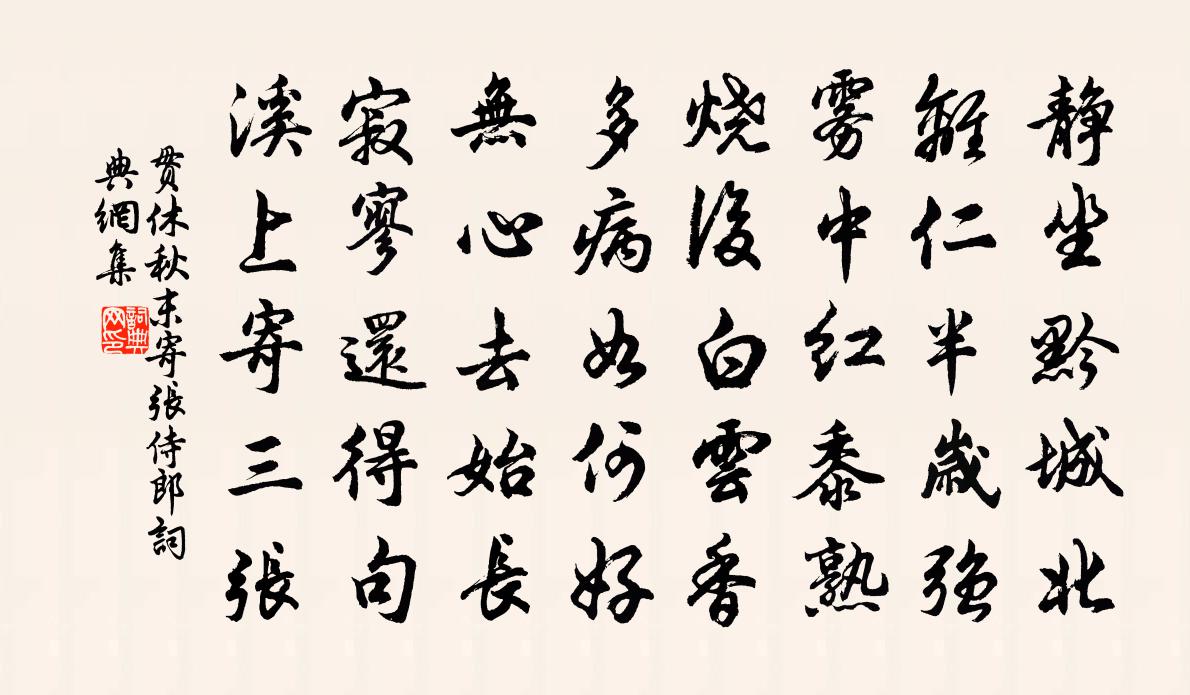 静坐黔城北
離仁半歲強
雾中紅黍熟
烧後白雲香
多病如何好
無心去始長
寂寥還得句
溪上寄三張
貫休秋末寄張侍郎詞
典網集
詞典
网印